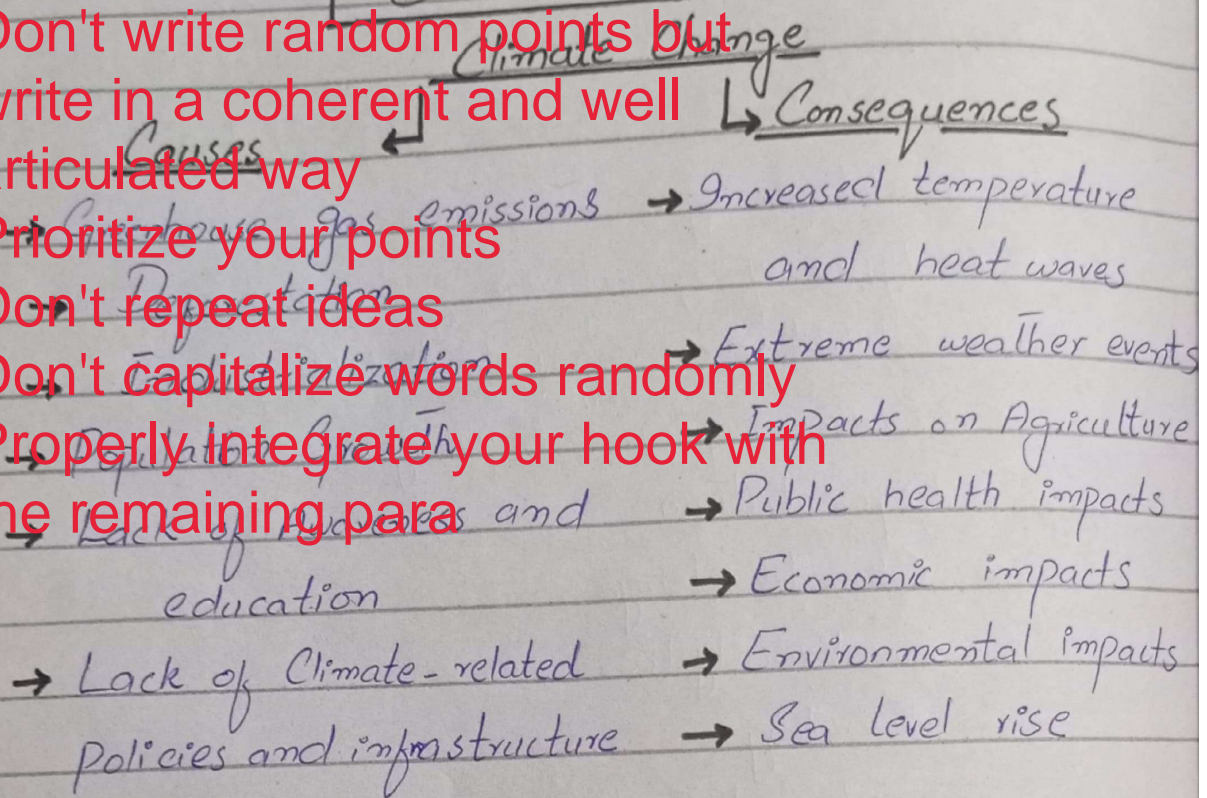 Don't write random points but
write in a coherent and well
articulated way
Prioritize your points
Don't repeat ideas
Don't capitalize words randomly
Properly integrate your hook with
the remaining para
Climate Change
Causes
→ Greenhouse gas emissions
→ Deforestation
→ Industrialization
→ Population Growth
→ Lack of Awareness and
education
→ Lack of Climate-related
policies and infrastructure
Consequences
→ Increased temperature
and heat waves
→ Extreme weather events
→ Impacts on Agriculture
→ Public health impacts
→ Economic impacts
→ Environmental impacts
→ Sea level rise